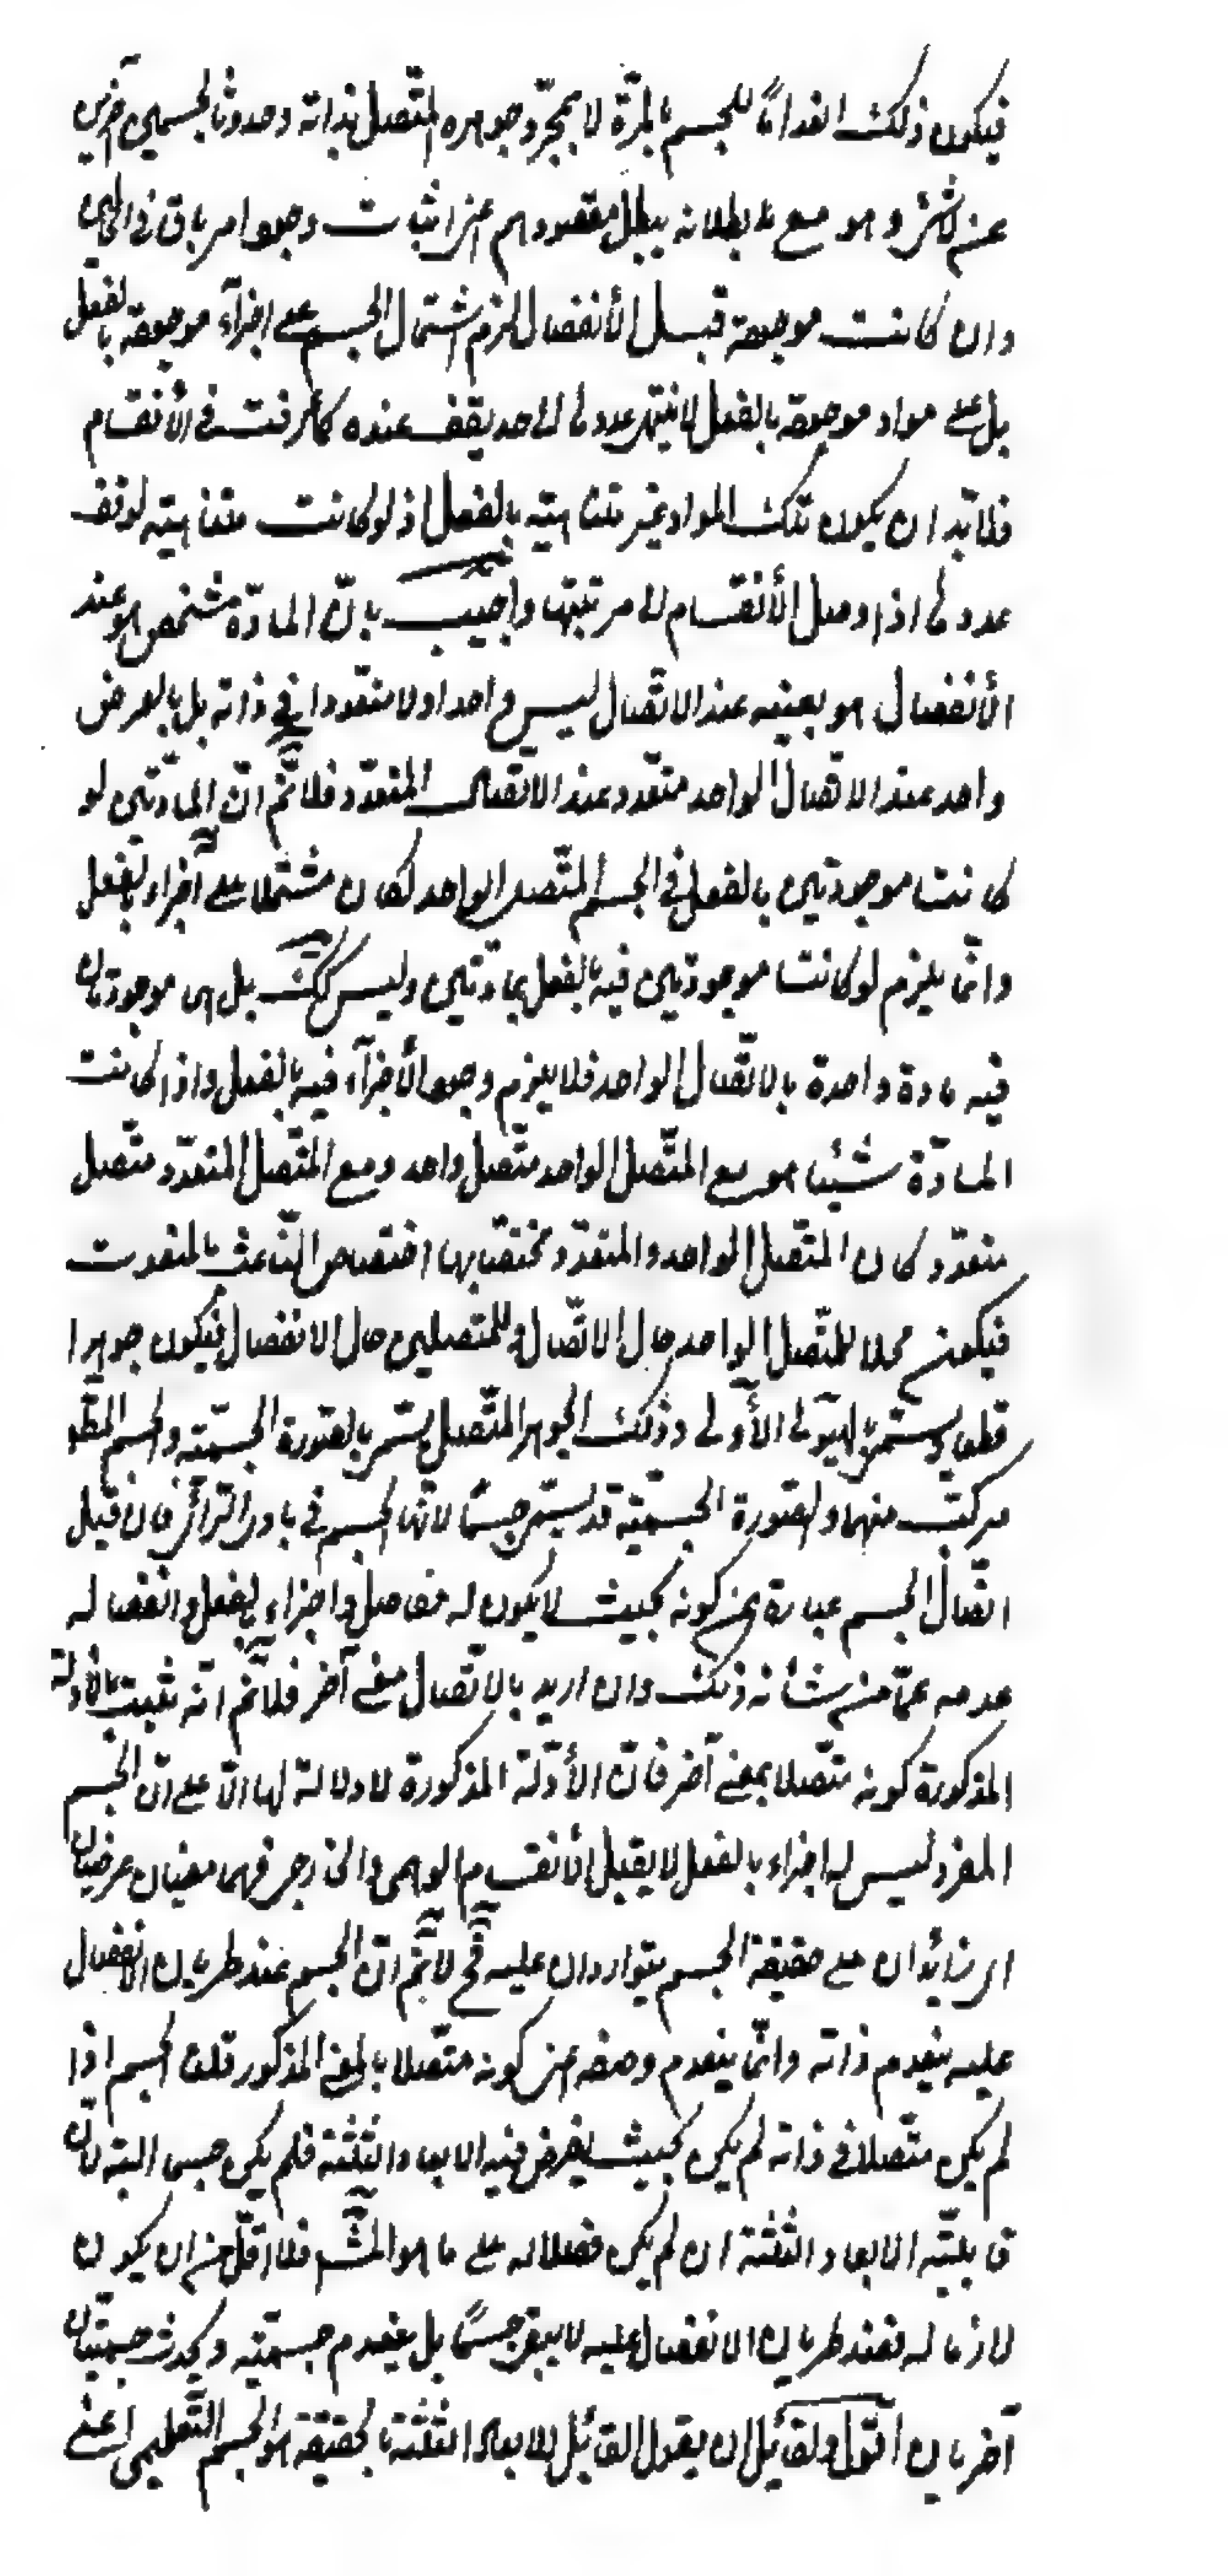 فيكون ذلك انعداما للجسم بالمرّة لا بمجرّد جوهره المتّصل بذاته وحدوثا لجسمين آخرين
عن لا شئ وهو مع بطلانه يبطل مقصودهم عن اثبات وجود امر باق فى الحالين
وان كانت موجودة قبل الأنفصال لزم اشتمال الجسم على اجزآء موجودة بالفعل
بل على مواد موجودة بالفعل لا ينتهى عددها الى حد يقف عنده كما عرفت فى الأنقسام
فلا بّد ان يكون تلك المواد غير متناهية بالفعل اذ لو كانت متناهية لوقف
عددها اذا وصل الأنقسام الى مرتبتها واجيب بانّ المادّة شخص هو عند
الأنفصال هو بعينه عند الاتّصال ليس واحدا ولا متعّددا فى ذاته بل بالعرض
واحد عند الاتصال الواحد متعّدد عند الاتصال المتعدّد فلا نّم انّ المادّتين لو
كانتا موجودتين بالفعل فى الجسم المتّصل الواحد لكان مشتملا على اجزاء بالفعل
وانّما يلزم لو كانتا موجودتين فيه بالفعل بمادّتين وليس كك بل هى موجودتان
فيه مادة واحدة بالاتّصال الواحد فلا يلزم وجود الأجزآء فيه بالفعل واذا كانت
المادّة شيئا هو مع المتّصل الواحد متّصل واحد ومع المتّصل المتعدّد متّصل
متعدّد كان المتّصل الواحد والمتعدّد مختصّا بها اختصاص النّاعت بالمنعوت
فيكون محلا للمتّصل الواحد حال الاتّصال وللمتصلين حال الانفصال فيكون جوهرا
قطعا ويسمّى الهيّولى الأولى وذلك الجوهر المتّصل يسمّى بالصّورة الجسمّية والجسم المطلق
مركّب منهما والصّورة الجسميّة قد يسمّى جسمًا لانّها الجسم فى بادى الرّأى فان قيل
اتّصال الجسم عبارة عن كونه بحيث لا يكون له مفاصل واجزاء بالفعل وانفصاله
عدمه عمّا من شأنه ذلك وان اريد بالاتّصال معنى آخر فلا نّم انّه يثبت بالادلة
المذكورة كونه متّصلا بمعنى آخر فانّ الأدّلة المذكورة لا دلالة لها الّا على انّ الجسم
المفرد ليس له اجزاء بالفعل لا يقبل الأنقسام الوهمى والخارجى فهما معنيان عرضيان
زائدان على حقيقة الجسم يتواردان عليه فح لا نّم انّ الجسم عند طريان الانفصال
عليه ينعدم ذاته وانّما ينعدم وصفه عن كونه متّصلا بالمعنى المذكور قلت الجسم اذا
لم يكن متّصلا فى ذاته لم يكن بحيث يفرض فيه الابعاد الثّلثة فلم يكن جسما البتة لانّ
قابليّة الابعاد الثّلثة ان لم يكن فصلا له على ما هو المش فلا اقلّ من ان يكون
لازما له فعند طريان الانفصال عليه لا يبقى جسمًا بل ينعدم جسمّيته ويحدث جسمّيتان
آخريان اقول ولقائل ان يقول القابل للابعاد الثلثة بالحقيقة هو الجسم التّعليمى اعنى